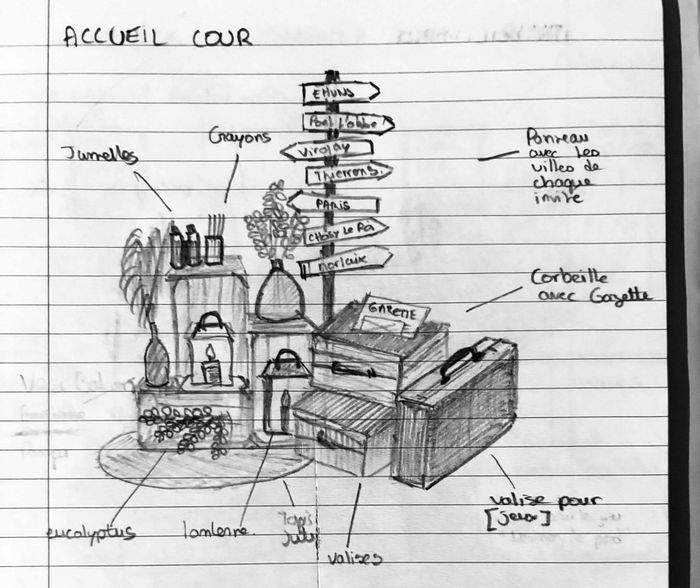 ACCUEIL COUR
EMUNS
Pont l'abbé
Virolay
Thierrens.
PARIS
CHOISY Le Roi
Morlaix
Jumelles
Crayons
Panneau
avec les
villes de
chaque
invité
Corbeille
avec Gazette
GAZETTE
eucalyptus
lanterne.
Tapis
jute
valises
valise pour
[jeux]